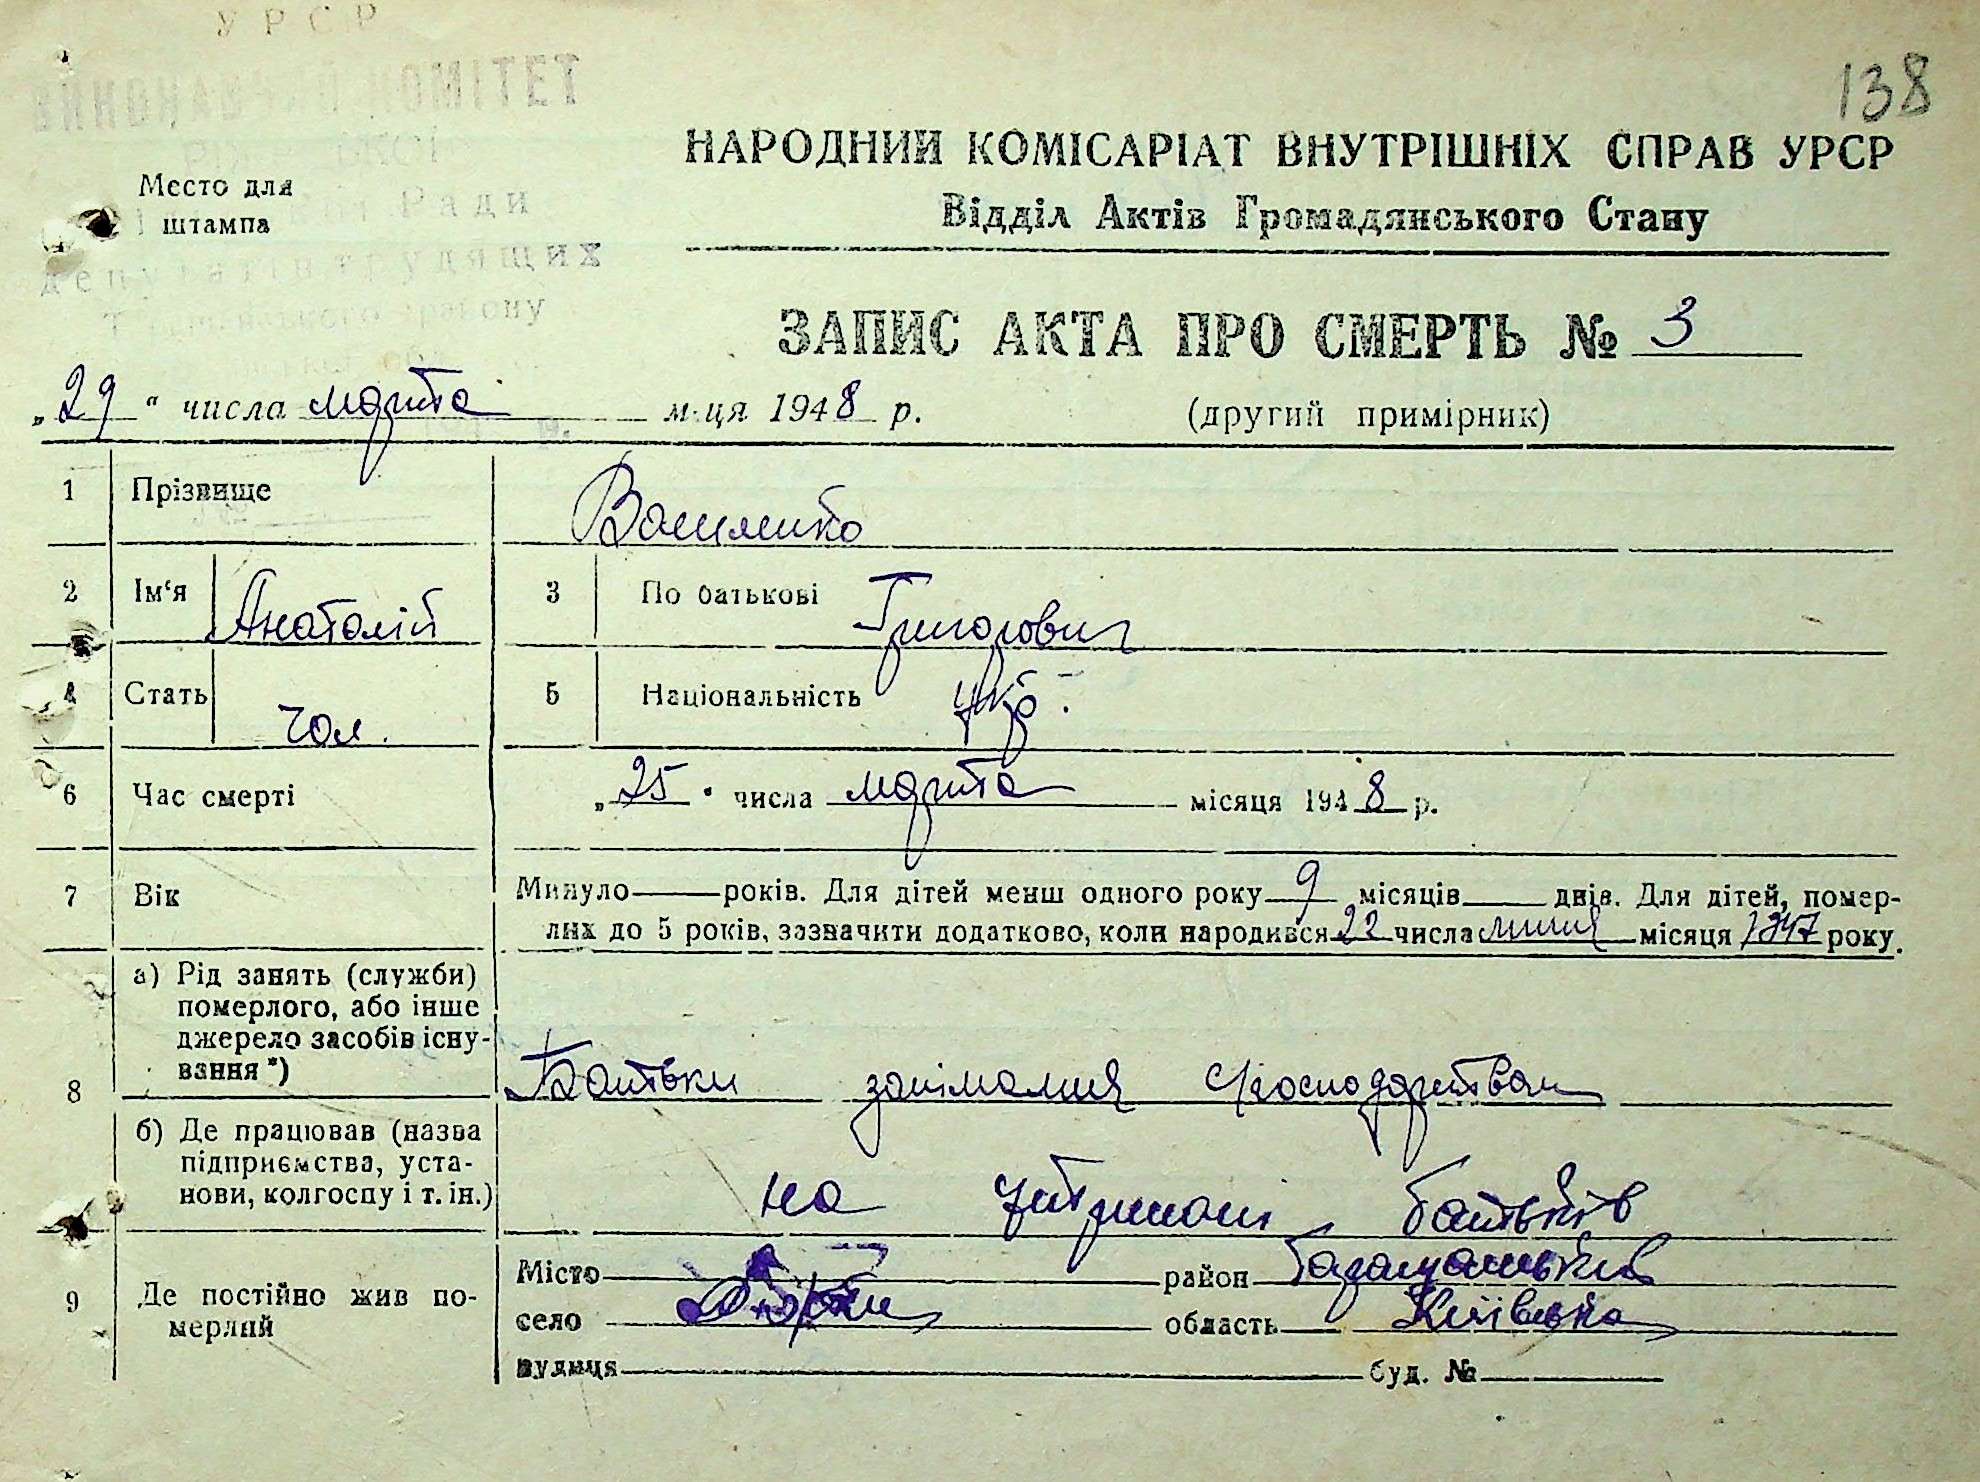 УРСР
138
ВИКОНАВЧИЙ КОМІТЕТ
Ради
депутатів трудящих
району
Место для
штампа
НАРОДНИЙ КОМІСАРІАТ ВНУТРІШНІХ СПРАВ УРСР
Відділ Актів Громадянського Стану
ЗАПИС АКТА ПРО СМЕРТЬ № 3
„29“ числа марта м-ця 1948 р. (другий примірник)
1 Прізвище
2 Ім‘я Анатолій 3 По батькові Григорович
4 Стать чол. 5 Національність укр.
6 Час смерті „25“ числа марта місяця 1948 р.
7 Вік Минуло — років. Для дітей менш одного року 9 місяців — днів. Для дітей, помер-
лих до 5 років, зазначити додатково, коли народився 22 числа місяця 1947 року.
8 а) Рід занять (служби)
померлого, або інше
джерело засобів існу-
вання *) Батьки господарством
б) Де працював (назва
підприємства, уста-
нови, колгоспу і т. ін.) на утримані батьків
9 Де постійно жив по-
мерлий
Місто район
село область Київська
вулиця буд. №